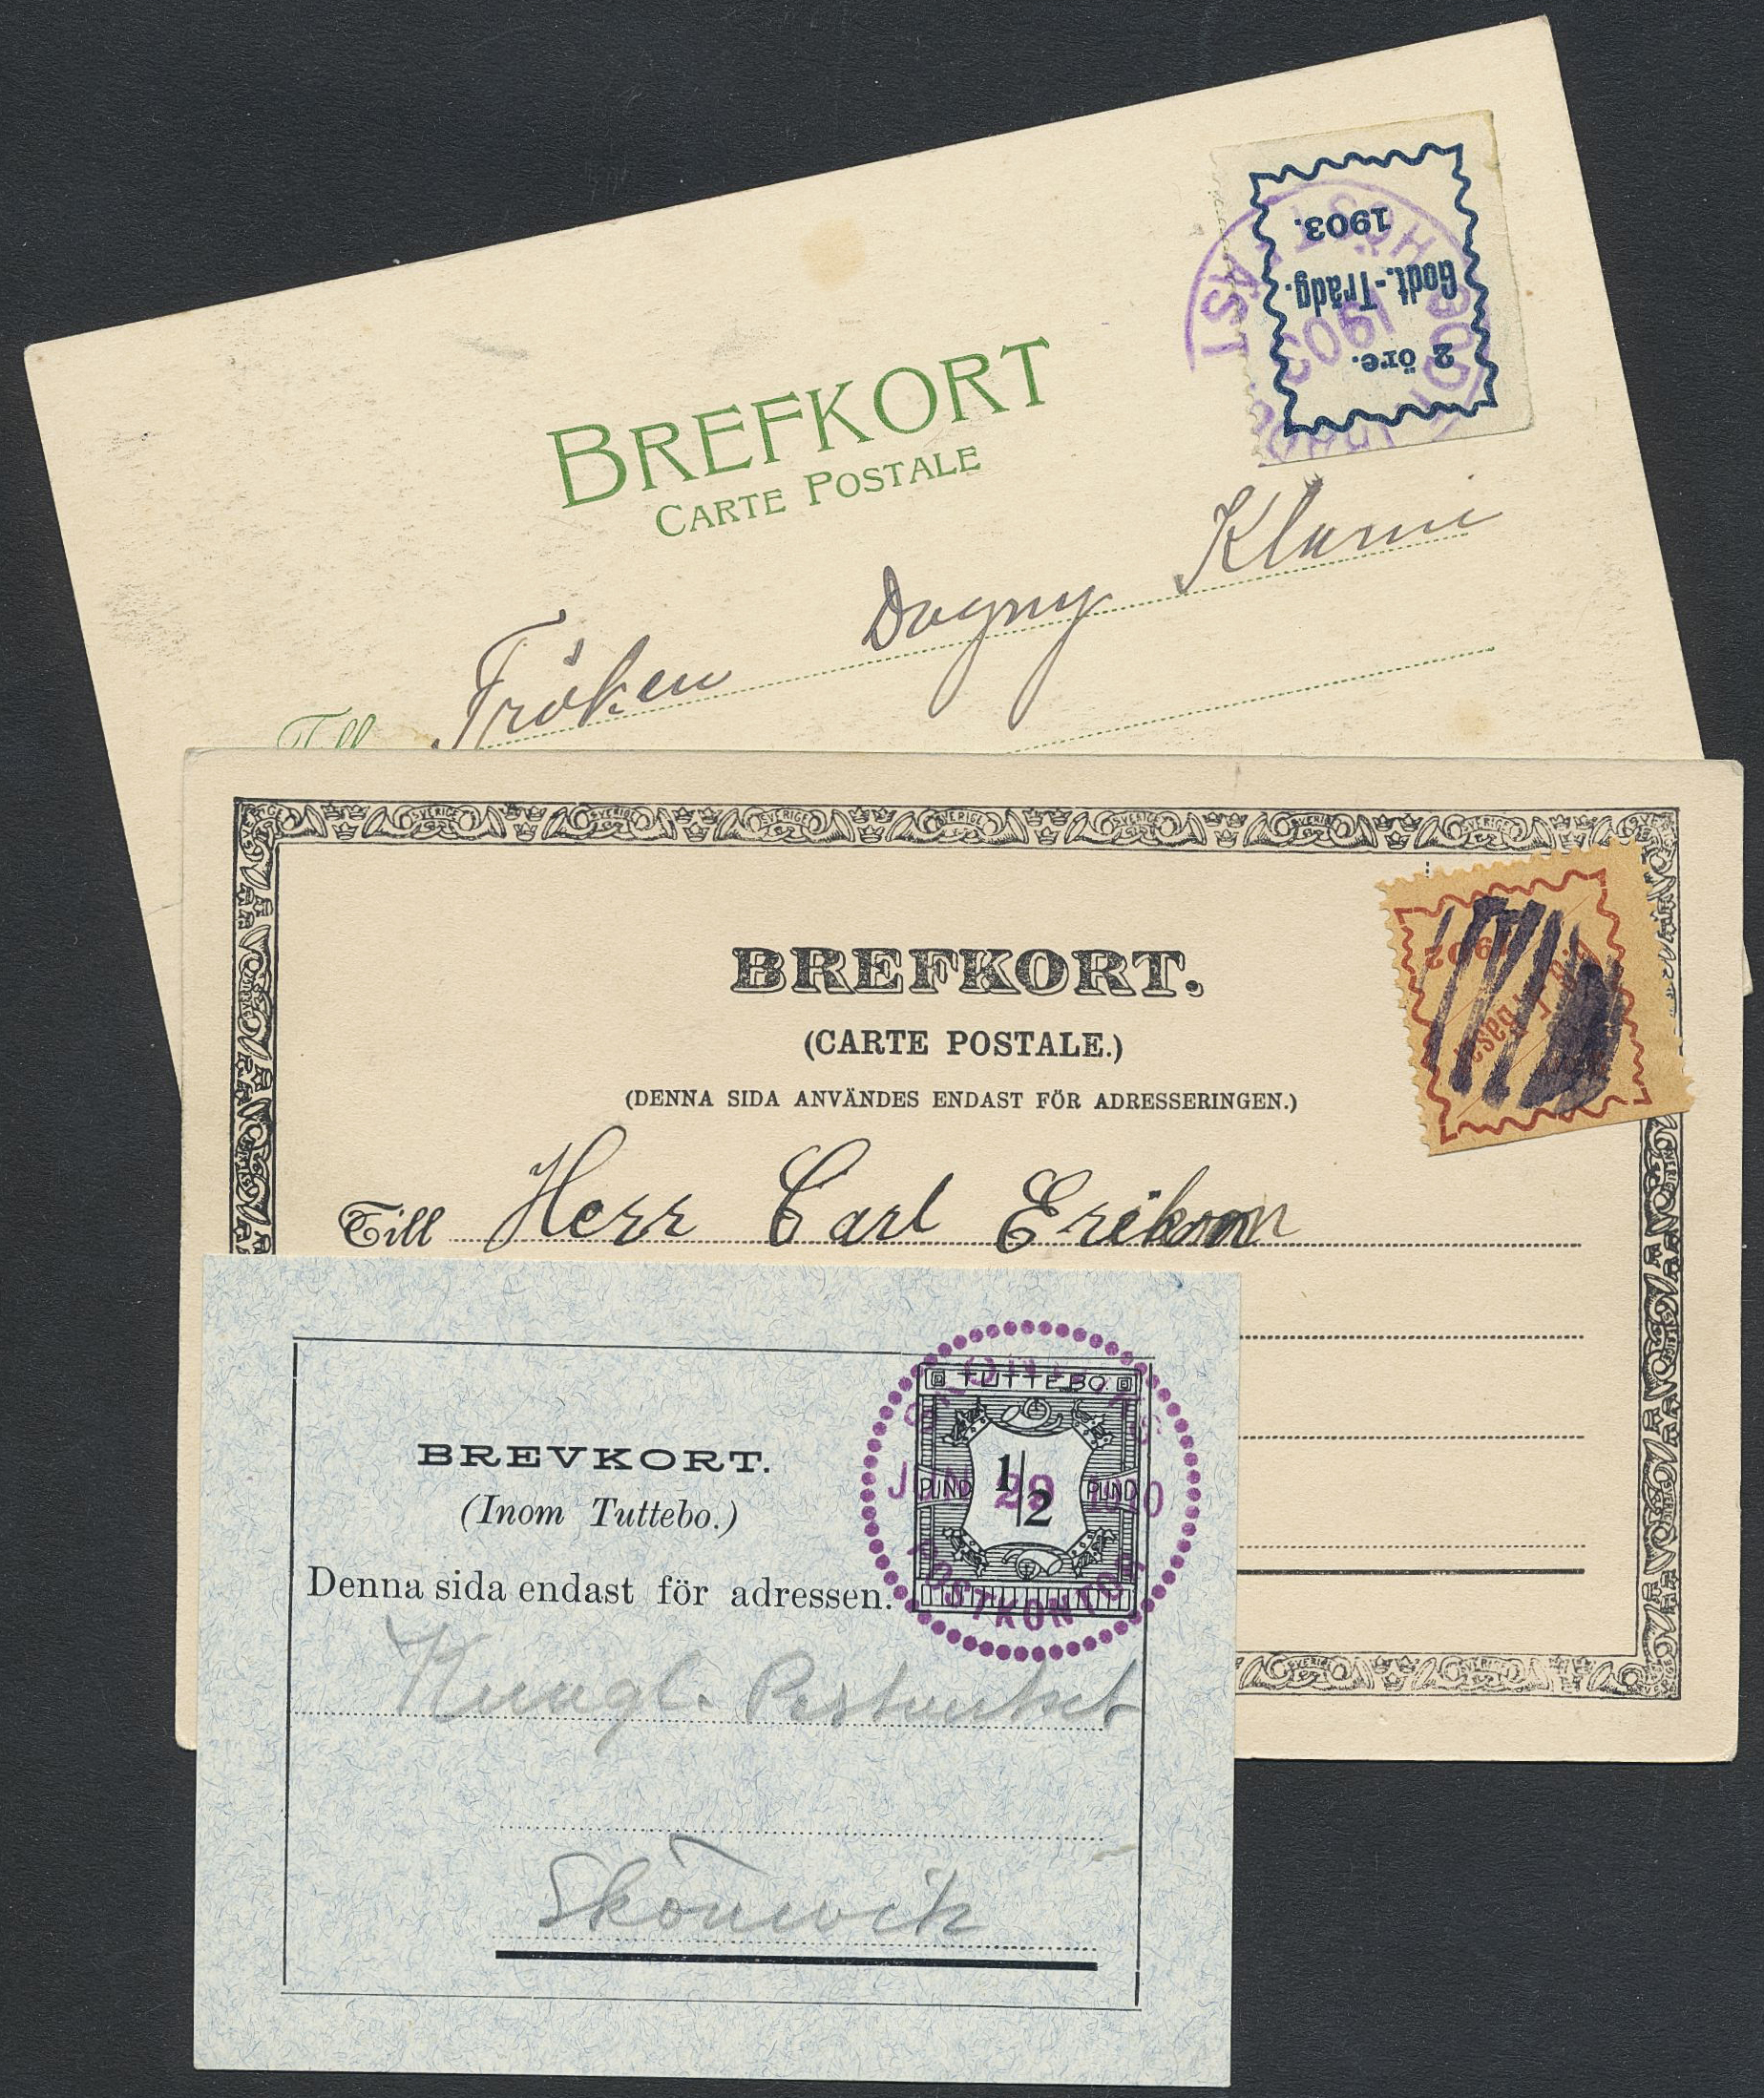 1903.
Godt.-Trädg.
2 öre.
1903
BREFKORT
CARTE POSTALE
Fröken Dagny Klami
Till
1902
BREFKORT.
(CARTE POSTALE.)
(DENNA SIDA ANVÄNDES ENDAST FÖR ADRESSERINGEN.)
Till Herr Carl Erikson
TUTTEBO
PUND 1/2 PUND
JUN 29
POSTKONTOR
BREVKORT.
(Inom Tuttebo.)
Denna sida endast för adressen.
Kungl. Postverket
Skönvik